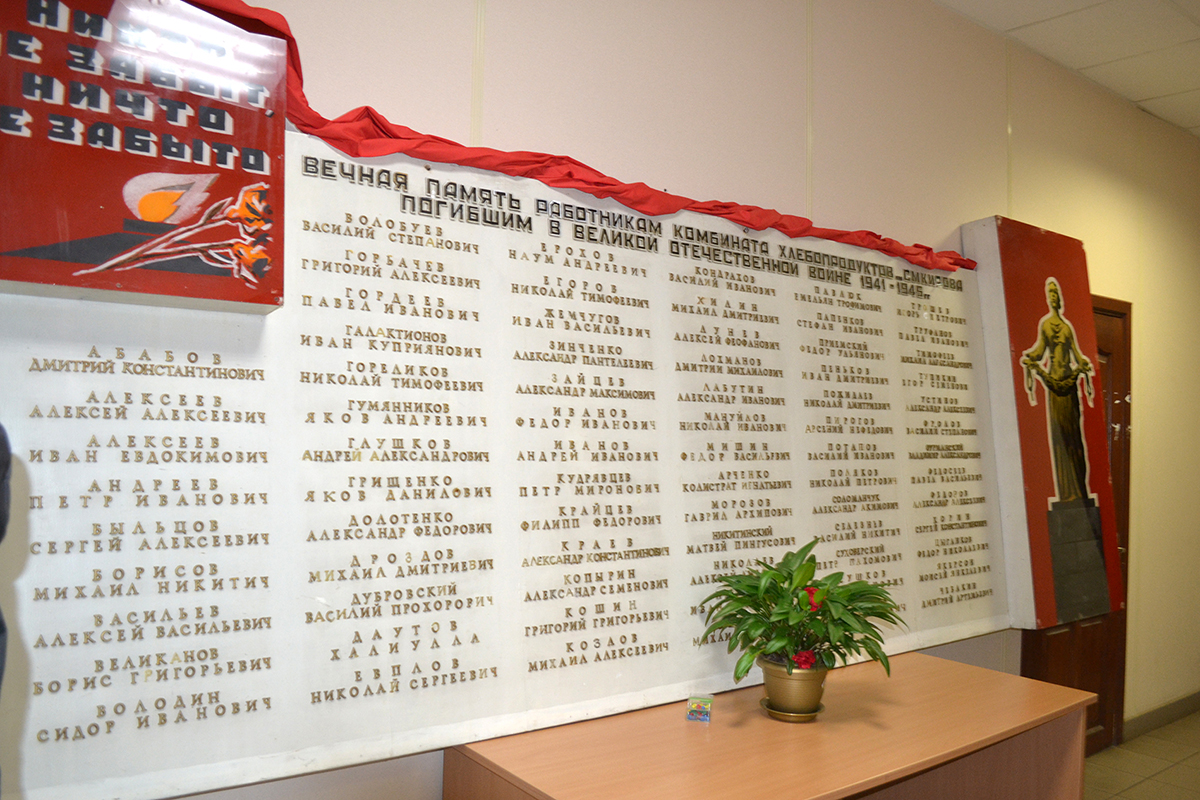 НИЧТО
ЗАБЫТО
ВЕЧНАЯ ПАМЯТЬ РАБОТНИКАМ КОМБИНАТА ХЛЕБОПРОДУКТОВ
ПОГИБШИМ В ВЕЛИКОЙ ОТЕЧЕСТВЕННОЙ ВОЙНЕ 1941-1945
АБАБОВ
ДМИТРИЙ КОНСТАНТИНОВИЧ
АЛЕКСЕЕВ
АЛЕКСЕЙ АЛЕКСЕЕВИЧ
АЛЕКСЕЕВ
ИВАН ЕВДОКИМОВИЧ
АНДРЕЕВ
ПЕТР ИВАНОВИЧ
ВЫЛЬЦОВ
СЕРГЕЙ АЛЕКСЕЕВИЧ
БОРИСОВ
МИХАИЛ НИКИТИЧ
ВАСИЛЬЕВ
АЛЕКСЕЙ ВАСИЛЬЕВИЧ
ВЕЛИКАНОВ
БОРИС ГРИГОРЬЕВИЧ
ВОЛОДИН
СИДОР ИВАНОВИЧ
ВОЛОБУЕВ
ВАСИЛИЙ СТЕПАНОВИЧ
ГОРБАЧЕВ
ГРИГОРИЙ АЛЕКСЕЕВИЧ
ГОРДЕЕВ
ПАВЕЛ ИВАНОВИЧ
ГАЛАКТИОНОВ
ИВАН КУПРИЯНОВИЧ
ГОРЕЛИКОВ
НИКОЛАЙ ТИМОФЕЕВИЧ
ГУМЯННИКОВ
ЯКОВ АНДРЕЕВИЧ
ГЛУШКОВ
АНДРЕЙ АЛЕКСАНДРОВИЧ
ГРИЩЕНКО
ЯКОВ ДАНИЛОВИЧ
ДОЛОТЕНКО
АЛЕКСАНДР ФЕДОРОВИЧ
ДРОЗДОВ
МИХАИЛ ДМИТРИЕВИЧ
ДУБРОВСКИЙ
ВАСИЛИЙ ПРОХОРОРИЧ
ДАУТОВ
ХАЛИУЛЛА
ЕВПЛОВ
НИКОЛАЙ СЕРГЕЕВИЧ
ЕРОХОВ
НАУМ АНДРЕЕВИЧ
ЕГОРОВ
НИКОЛАЙ ТИМОФЕЕВИЧ
ЖЕМЧУГОВ
ИВАН ВАСИЛЬЕВИЧ
ЗИНЧЕНКО
АЛЕКСАНДР ПАНТЕЛЕЕВИЧ
ЗАЙЦЕВ
АЛЕКСАНДР МАКСИМОВИЧ
ИВАНОВ
ФЕДОР ИВАНОВИЧ
ИВАНОВ
АНДРЕЙ ИВАНОВИЧ
КУДРЯВЦЕВ
ПЕТР МИРОНОВИЧ
КРАЙЦЕВ
ФИЛИПП ФЕДОРОВИЧ
КРАЕВ
АЛЕКСАНДР КОНСТАНТИНОВИЧ
КОПЫРИН
АЛЕКСАНДР СЕМЕНОВИЧ
КОШИН
ГРИГОРИЙ ГРИГОРЬЕВИЧ
КОЗЛОВ
МИХАИЛ АЛЕКСЕЕВИЧ
КОНДРАХОВ
ВАСИЛИЙ ИВАНОВИЧ
ХИЛИН
МИХАИЛ ДМИТРИЕВИЧ
ЛУНЕВ
АЛЕКСЕЙ ФЕОФАНОВИЧ
ЛОХМАНОВ
ДМИТРИЙ МИХАИЛОВИЧ
ЛАБУТИН
АЛЕКСАНДР ИВАНОВИЧ
МАНУЙЛОВ
НИКОЛАЙ ИВАНОВИЧ
МИШИН
ФЕДОР ВАСИЛЬЕВИЧ
АРЧЕНКО
КОЛИСТРАТ ИГНАТЬЕВИЧ
МОРОЗОВ
ГАВРИЛ АРХИПОВИЧ
НИКИТИНСКИЙ
МАТВЕЙ ПИНГУСОВИЧ
ПАВЛЮК
ЕМЕЛЬЯН ТРОФИМОВИЧ
ПАПЕНКОВ
СТЕФАН ИВАНОВИЧ
ПРИЕМСКИЙ
ФЕДОР УЛЬЯНОВИЧ
ПЕНЬКОВ
ИВАН ДМИТРИЕВИЧ
ПОЖИДАЕВ
НИКОЛАЙ ДМИТРИЕВИЧ
ПИРОГОВ
АРСЕНИЙ НЕФЕДОВИЧ
ПОТАПОВ
ВАСИЛИЙ ИВАНОВИЧ
ПОЛЯКОВ
НИКОЛАЙ ПЕТРОВИЧ
СОЛОМАНЧУК
АЛЕКСАНДР АКИМОВИЧ
ВАСИЛИЙ НИКИТИЧ
СУХОВЕРСКИЙ
ПЕТР ПАХОМОВИЧ
ПЕТРОВИЧ
ТРУФАНОВ
ПАВЕЛ ИВАНОВИЧ
ТИМОФЕЕВ
МИХАИЛ АЛЕКСАНДРОВИЧ
ЕГОР СЕМЕНОВИЧ
УСТИНОВ
АЛЕКСАНДР АЛЕКСЕЕВИЧ
ФРОЛОВ
ВАСИЛИЙ СТЕПАНОВИЧ
ФУРМАНСКИЙ
ВЛАДИМИР АЛЕКСАНДРОВИЧ
ФЕДОСЕЕВ
ПАВЕЛ ВАСИЛЬЕВИЧ
ФЕДОРОВ
АЛЕКСАНДР АЛЕКСЕЕВИЧ
СЕРГЕЙ КОНСТАНТИНОВИЧ
ЦЫГАНКОВ
ФЕДОР НИКОЛАЕВИЧ
МОИСЕЙ МИХАЙЛОВИЧ
ДМИТРИЙ АРТЕМЬЕВИЧ